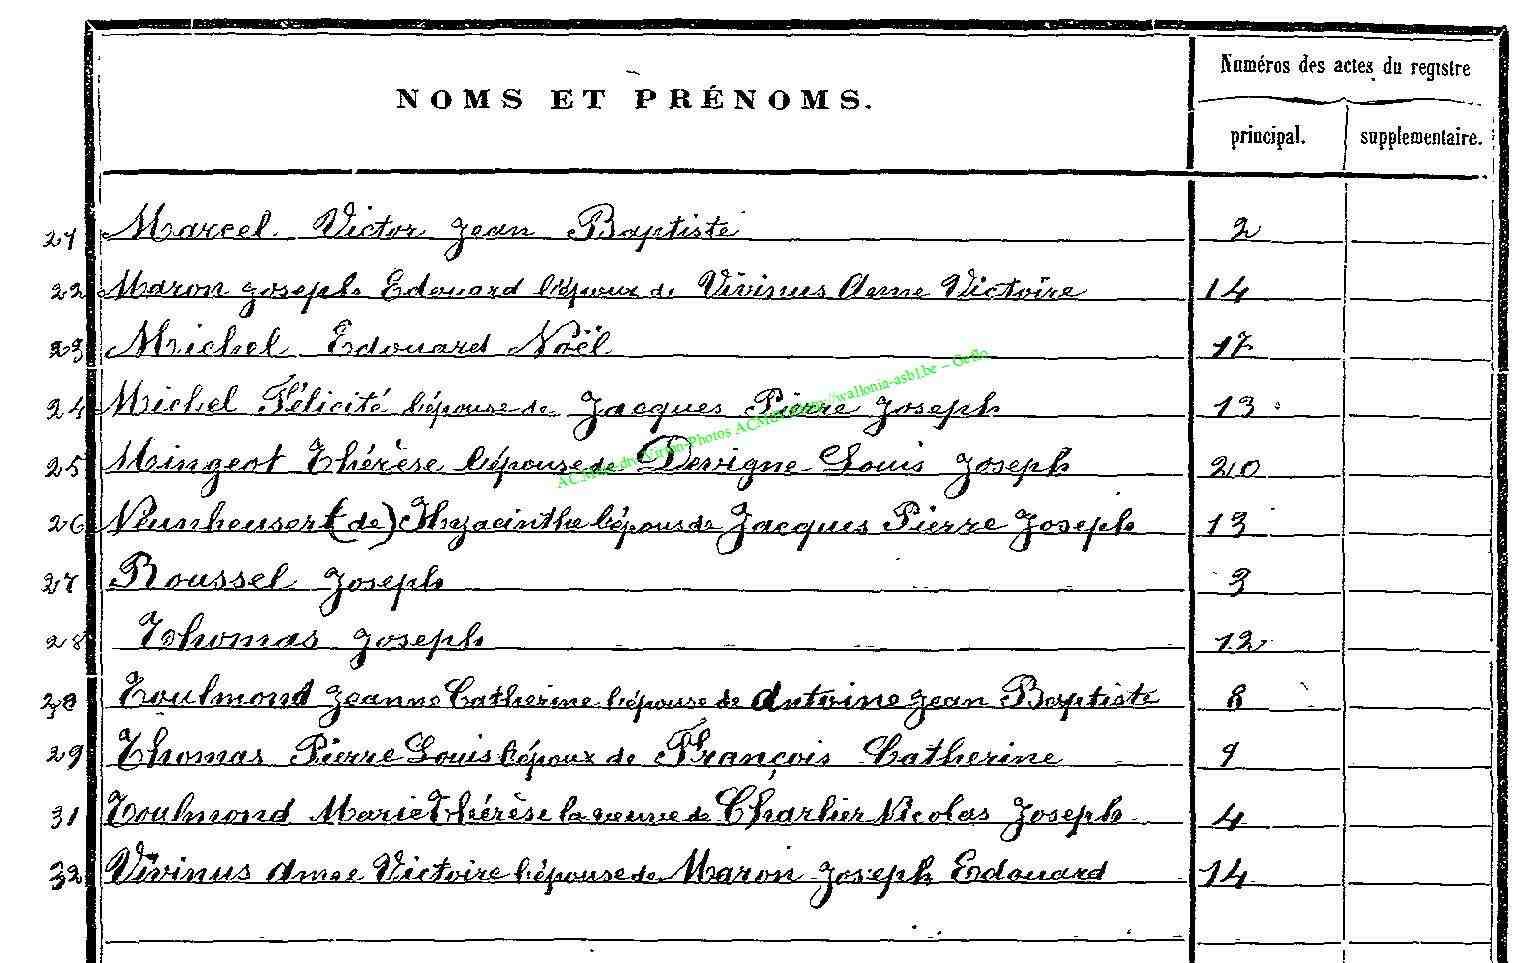 Numéros des actes du registre
NOMS ET PRÉNOMS.
principal. supplementaire.
21 Marcel Victor Jean Baptiste 2
22 Maron Joseph Edouard l'époux de Vivinus Anne Victoire 14
23 Michel Edouard Noël 17
24 Michel Félicité l'épouse de Jacques Pierre Joseph 13
25 Mingeot Thérèse l'épouse de Devigne Louis Joseph 20
26 Neunheusert (de) Hyacinthe l'épouse de Jacques Pierre Joseph 13
27 Roussel Joseph 3
28 Thomas Joseph 12
Toulmond Jeanne Catherine l'épouse de Antoine Jean Baptiste 8
29 Thomas Pierre Louis l'époux de François Catherine 9
31 Toulmond Marie Thérèse la veuve de Charlier Nicolas Joseph 4
32 Vivinus Anne Victoire l'épouse de Maron Joseph Edouard 14